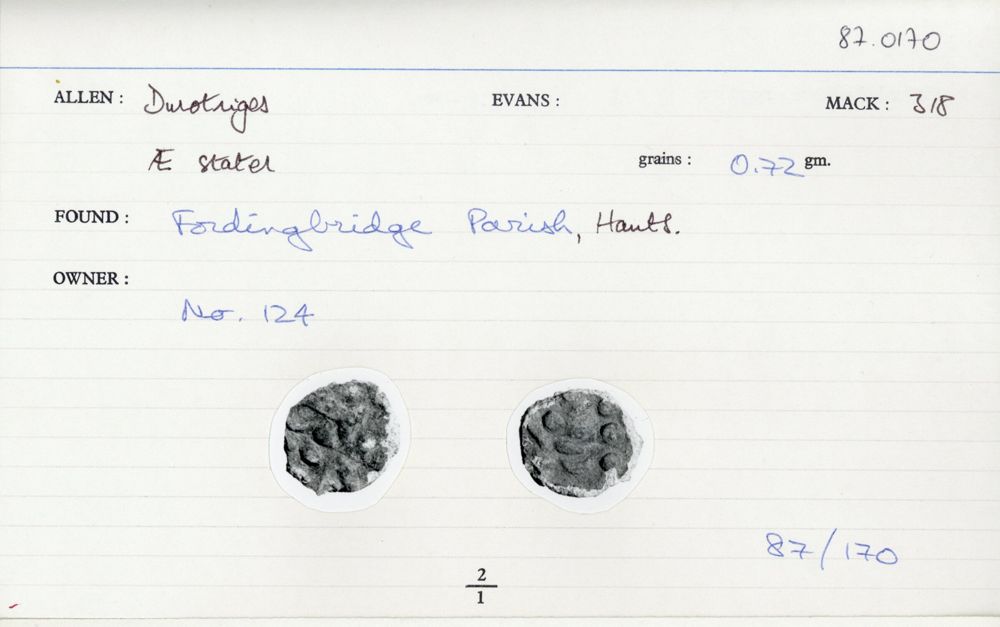 87.0170
ALLEN: Durotriges EVANS: MACK: 318
Æ stater grains: 0.72 gm.
FOUND: Fordingbridge Parish, Hants.
OWNER:
No. 124
87/170
2
1